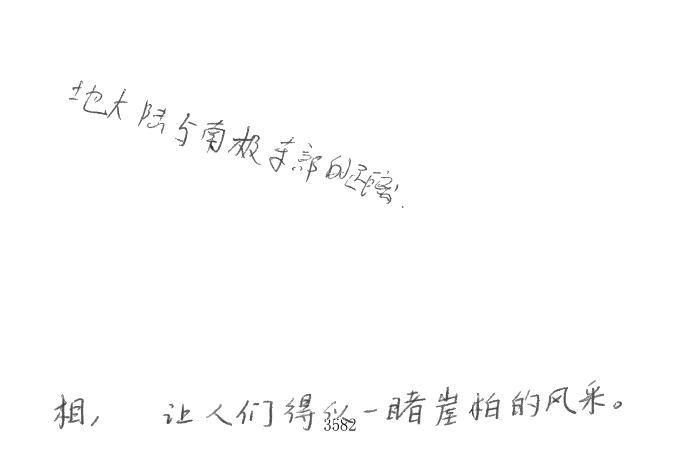 地大陆与南极东部的距离.
相, 让人们得以一睹崖柏的风采。
3582